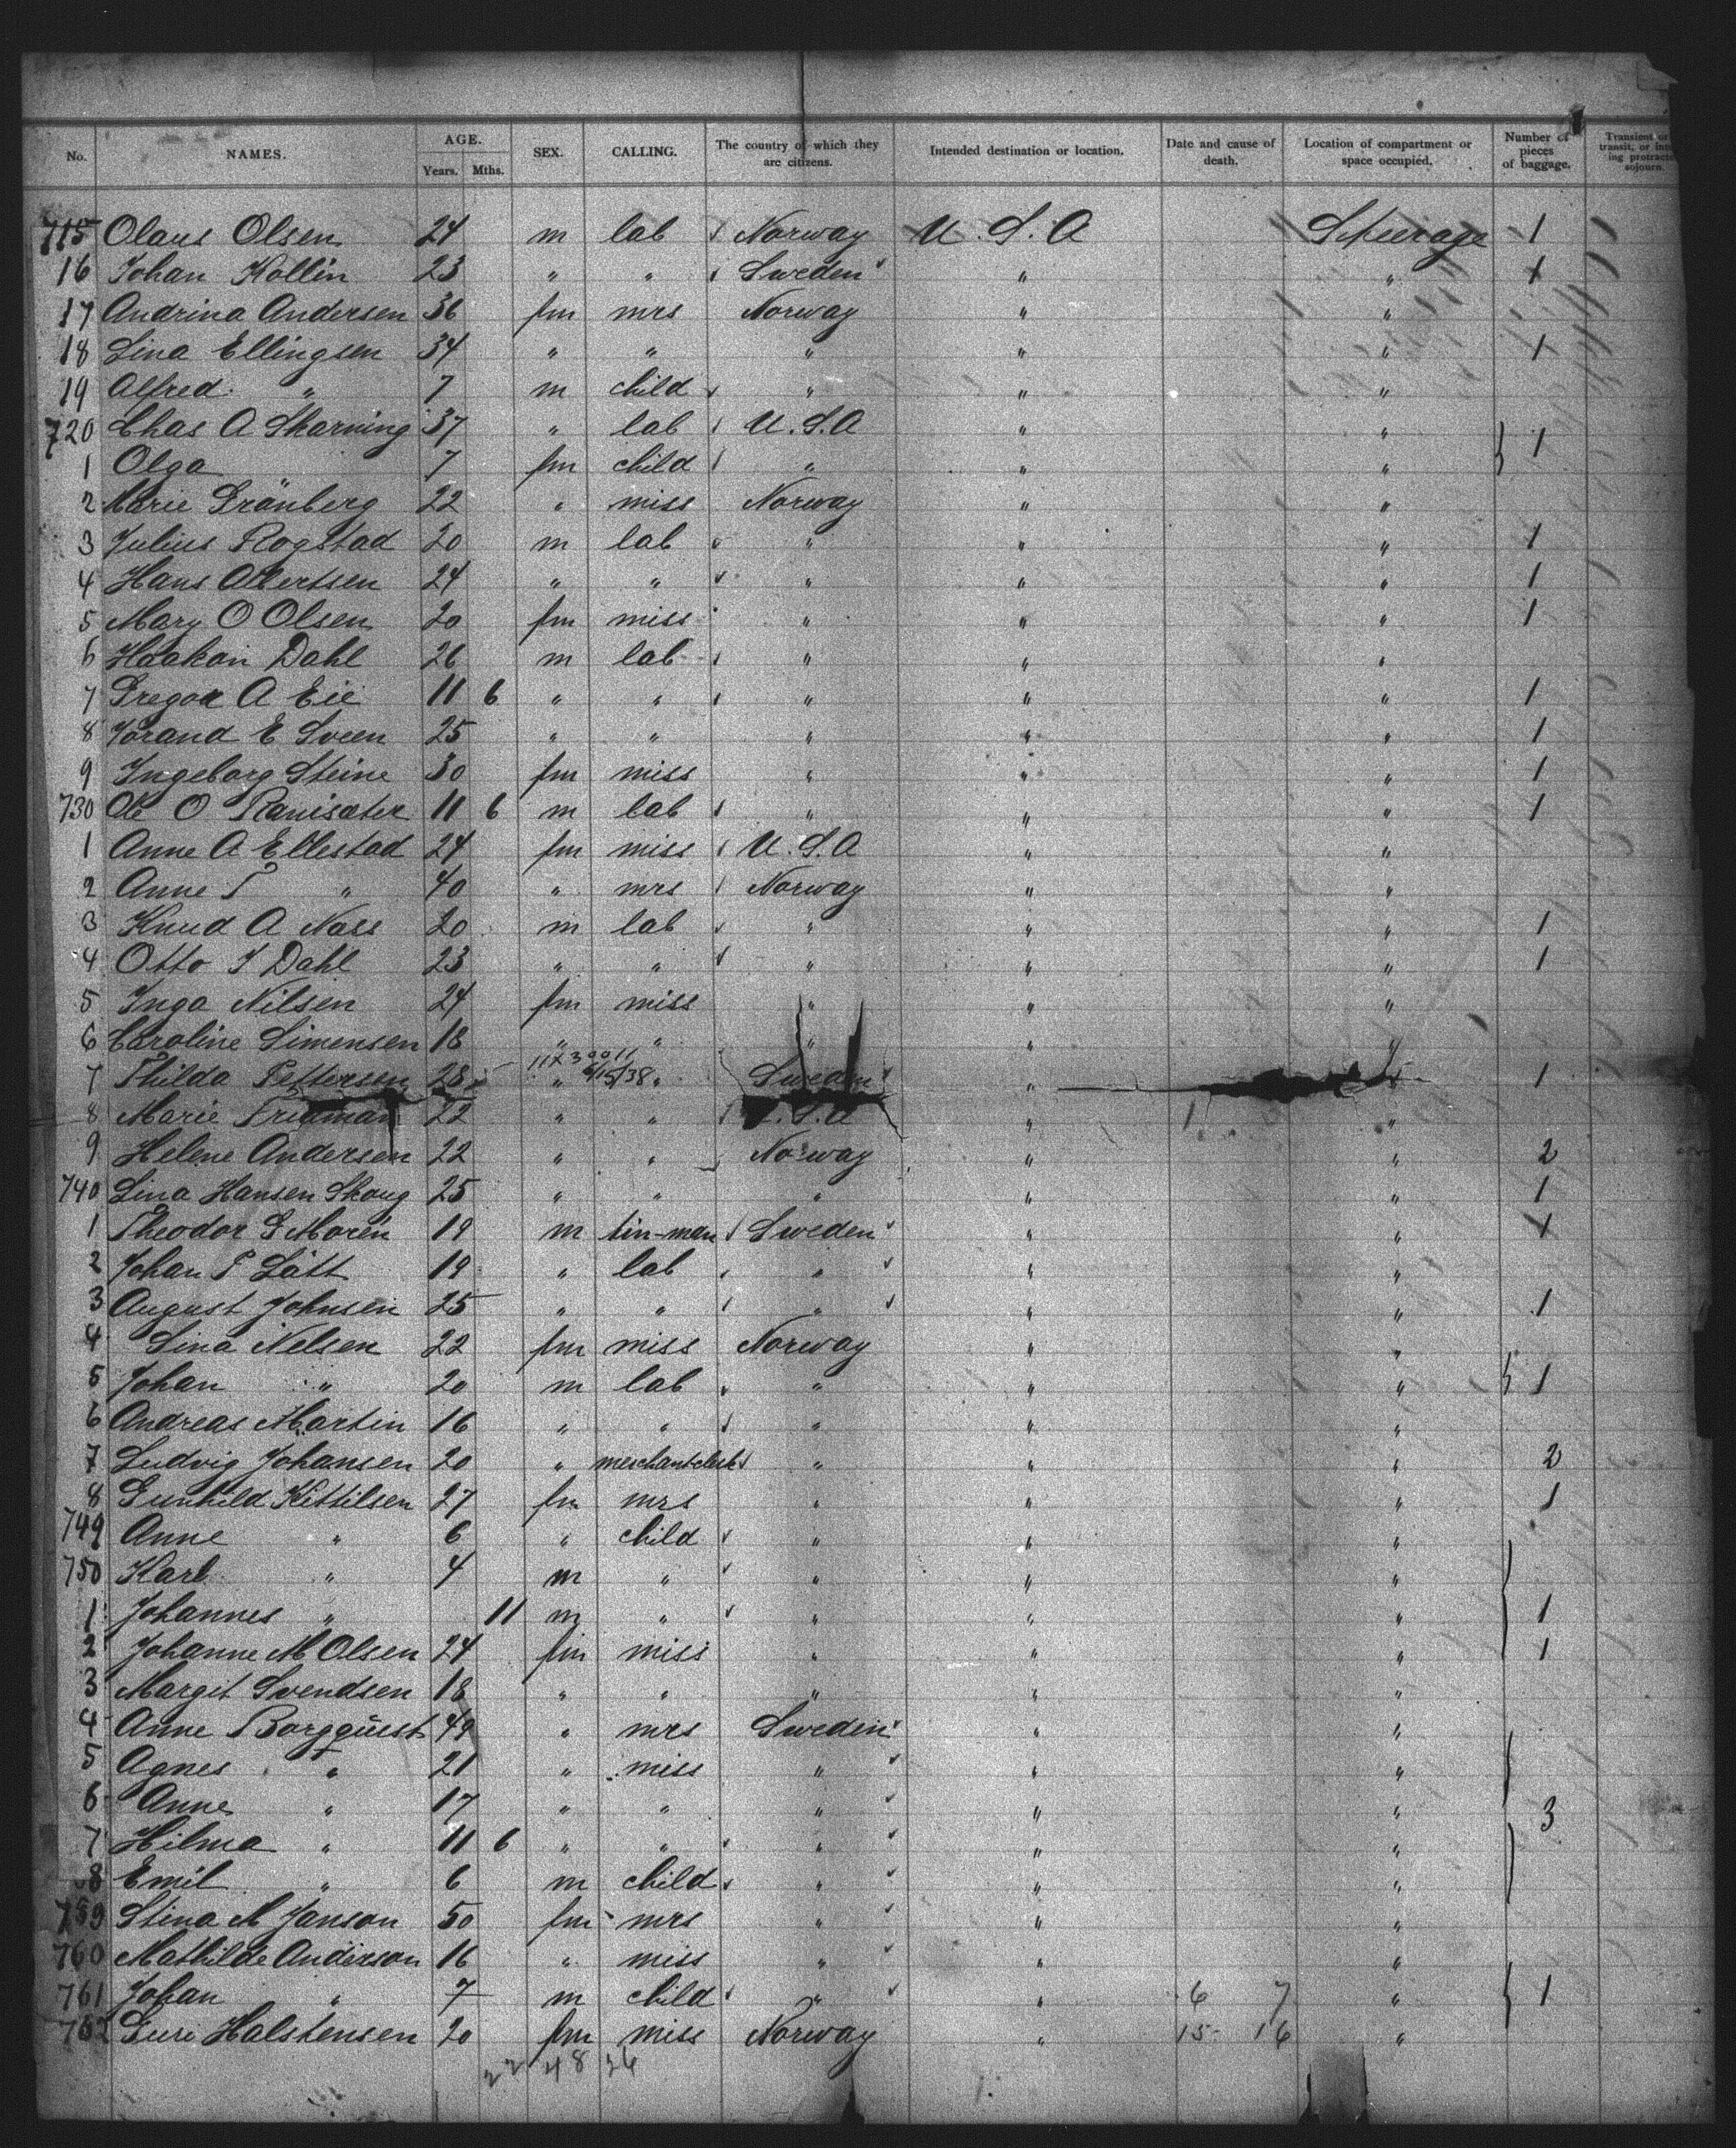 No. NAMES. AGE. Years. Mths. SEX. CALLING. The country of which they are citizens. Intended destination or location. Date and cause of death. Location of compartment or space occupied. Number of pieces of baggage. Transient or
715 Olaus Olsen 24 m lab Norway U.S.A Steerage 1
16 Johan Kollin 23 " " Sweden " " 1
17 Andrina Andersen 36 fm mrs Norway " "
18 Lina Ellingsen 34 " " " " " 1
19 Alfred " 7 m child " " "
720 Chas A Skarning 37 " lab U.S.A " " 1
1 Olga 7 fm child " " "
2 Marie Grönberg 22 " miss Norway " "
3 Julius Rogstad 20 m lab " " " 1
4 Hans 24 " " " " " 1
5 Mary O Olsen 20 fm miss " " " 1
6 Haakon Dahl 26 m lab " " "
7 Gregor A Eie 11 6 " " " " " 1
8 E Sveen 25 " " " " " 1
9 Ingeborg Steine 30 fm miss " " " 1
730 Ole O 11 6 m lab " " " 1
1 Anne A Ellestad 24 fm miss U.S.A " "
2 Anne T " 40 " mrs Norway " "
3 Knud A Næss 20 m lab " " " 1
4 Otto J Dahl 23 " " " " " 1
5 Inga Nilsen 24 fm miss " " "
6 Caroline Simensen 18 " " " " "
11 X 30011
7 Thilda Pettersen 28 " 6/15/38 " Sweden " " 1
8 Marie 22 " " " "
9 Helene Andersen 22 " " Norway " " 2
740 Lina Hansen Skoug 25 " " " " " 1
1 Theodor G Morén 19 m tin-man Sweden " " 1
2 Johan P Lätt 19 " lab " " "
3 August Johnsen 25 " " " " " 1
4 Lina Nelsen 22 fm miss Norway " "
5 Johan " 20 m lab " " " 1
6 Andreas Martin 16 " " " " "
7 Ludvig Johansen 20 " merchant clerk " " " 2
8 Gunhild Kittilsen 27 fm mrs " " " 1
749 Anne " 6 " child " " "
750 Karl " 4 m " " " "
1 Johannes " 11 m " " " " 1
2 Johanne M Olsen 24 fm miss " " " 1
3 Margit Svendsen 18 " " " " "
4 Anne Borgquist 49 " mrs Sweden " "
5 Agnes " 21 " miss " " "
6 Anne " 17 " " " " " 3
7 Hilma " 11 6 " " " " "
8 Emil " 6 m child " " "
759 Stina M Janson 50 fm mrs " " "
760 Mathilde Anderson 16 " miss " " "
761 Johan " 7 m child " " 6 7 " 1
762 Guri Halstensen 20 fm miss Norway " 15 16 "
22 48 26